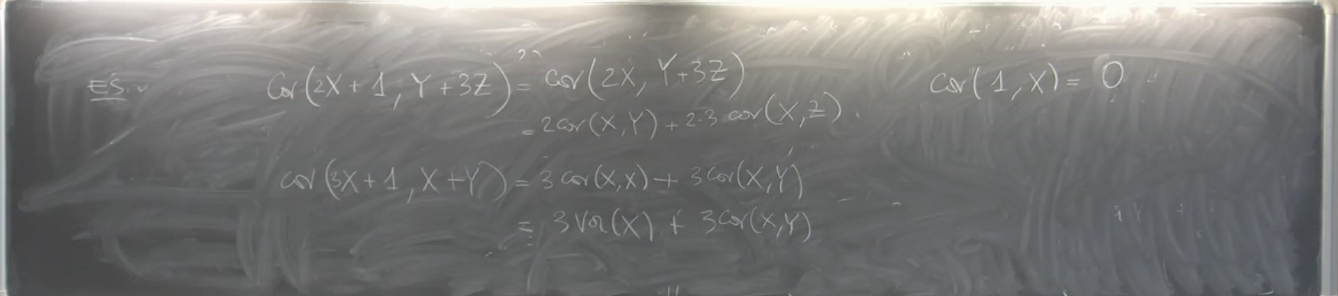 ES. cov(2X+1, Y+3Z) = cov(2X, Y+3Z) cov(1, X) = 0
= 2cov(X,Y) + 2·3 cov(X,Z).
cov(3X+1, X+Y) = 3cov(X,X) + 3cov(X,Y)
= 3Var(X) + 3cov(X,Y)